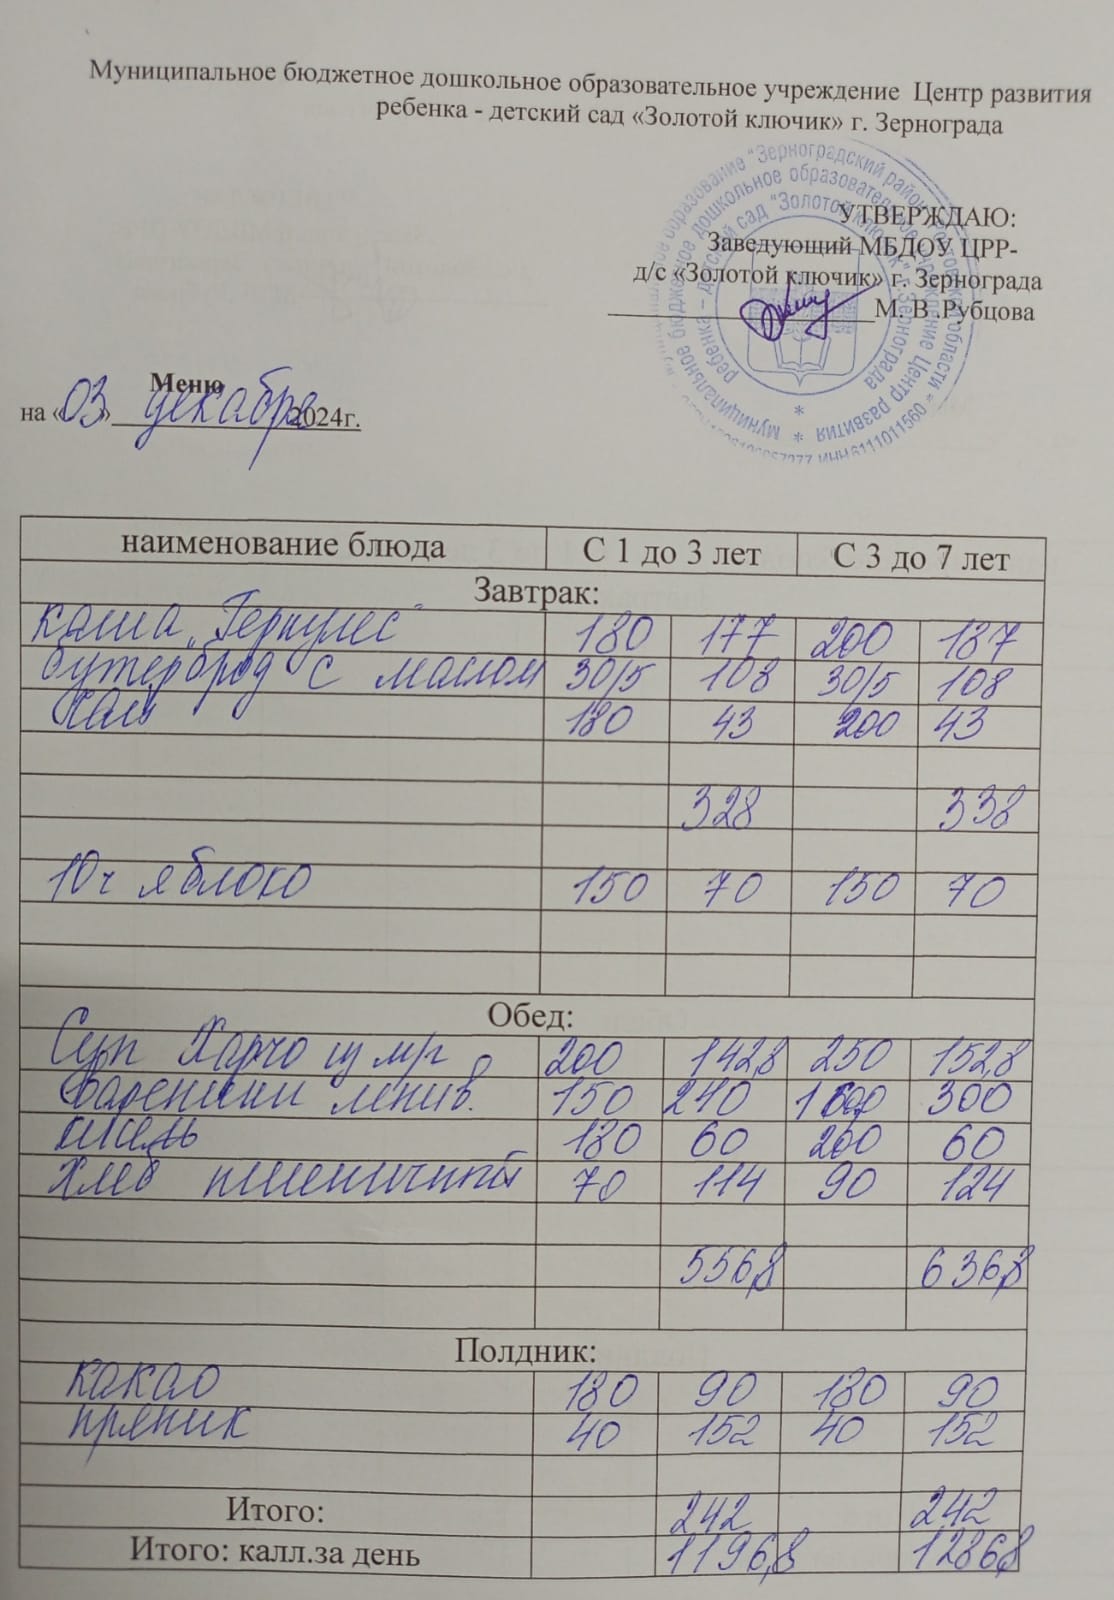 Муниципальное бюджетное дошкольное образовательное учреждение Центр развития
ребенка - детский сад «Золотой ключик» г. Зернограда
УТВЕРЖДАЮ:
Заведующий МБДОУ ЦРР-
д/с «Золотой ключик» г. Зернограда
М. В .Рубцова
Меню
на «03» декабря 2024г.
наименование блюда С 1 до 3 лет С 3 до 7 лет
Завтрак:
каша „Геркулес" 180 177 200 187
бутерброд с маслом 30/5 108 30/5 108
чай 180 43 200 43
328 338
10ч яблоко 150 70 150 70
Обед:
Суп Харчо 200 142,8 250 152,8
вареники ленив. 150 240 300
кисель 180 60 200 60
хлеб пшеничный 70 114 90 124
556,8 636,8
Полдник:
какао 180 90 180 90
пряник 40 152 40 152
Итого: 242 242
Итого: калл.за день 1196,8 1286,8
муниципальное образование "Зерноградский район" Ростовской области
муниципальное бюджетное дошкольное образовательное учреждение Центр развития
ребенка – детский сад "Золотой ключик" г.Зернограда
ИНН 6111011560